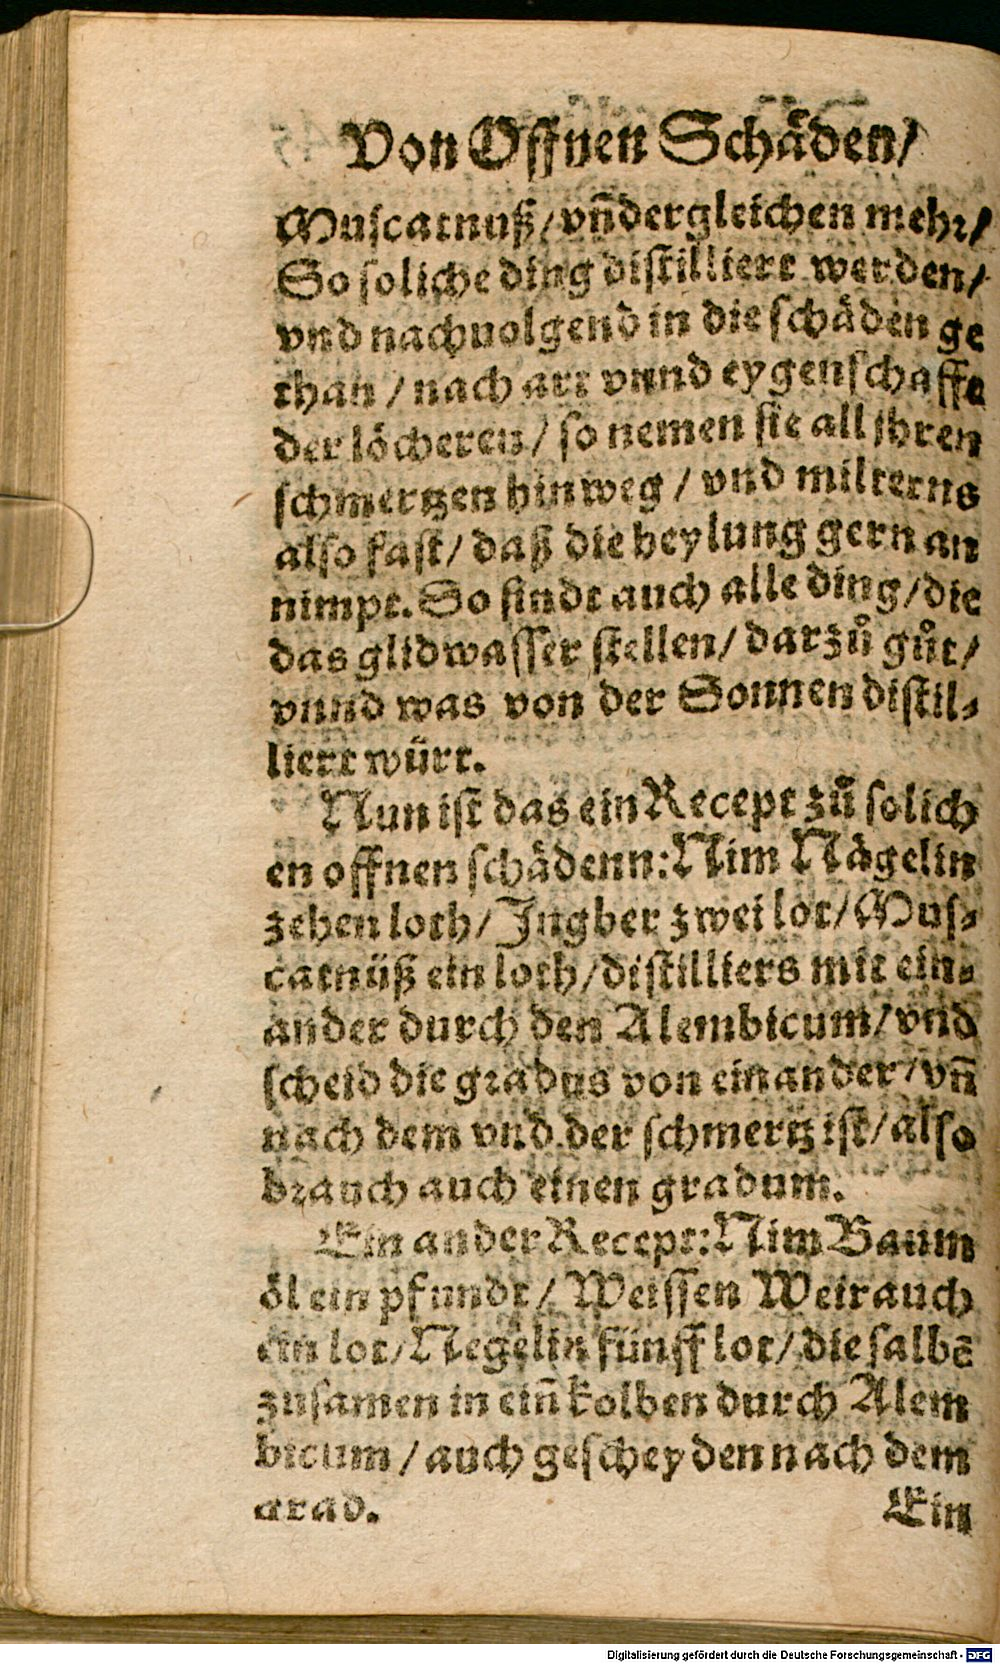 Von Offnen Schäden/
Muscatnuß/vñdergleichen mehr/
So soliche ding distilliert werden/
vnd nachuolgend in die schäden ge
than / nach art vnnd eygenschafft
der löcheren/ so nemen sie all jhren
schmertzen hinweg / vnd milterns
also fast/ daß die heylung gern an
nimpt. So sindt auch alle ding/die
das glidwasser stellen/ darzů gůt/
vnnd was von der Sonnen distil⸗
liert würt.
Nun ist das ein Recept zů solich
en offnen schädenn: Nim Nägelin
zehen loth/ Jngber zwei lot/Mus⸗
catnüß ein loth/distilliers mit ein⸗
ander durch den Alembicum/vnd
scheid die gradus von einander/vñ
nach dem vnd der schmertz ist/also
brauch auch einen gradum.
Ein ander Recept: Nim Baum
öl ein pfundt/ Weissen Weirauch
ein lot/Negelin fünff lot/die salbẽ
zusamen in eiñ kolben durch Alem
bicum / auch gescheyden nach dem
grad. Ein
Digitalisierung gefördert durch die Deutsche Forschungsgemeinschaft - DFG